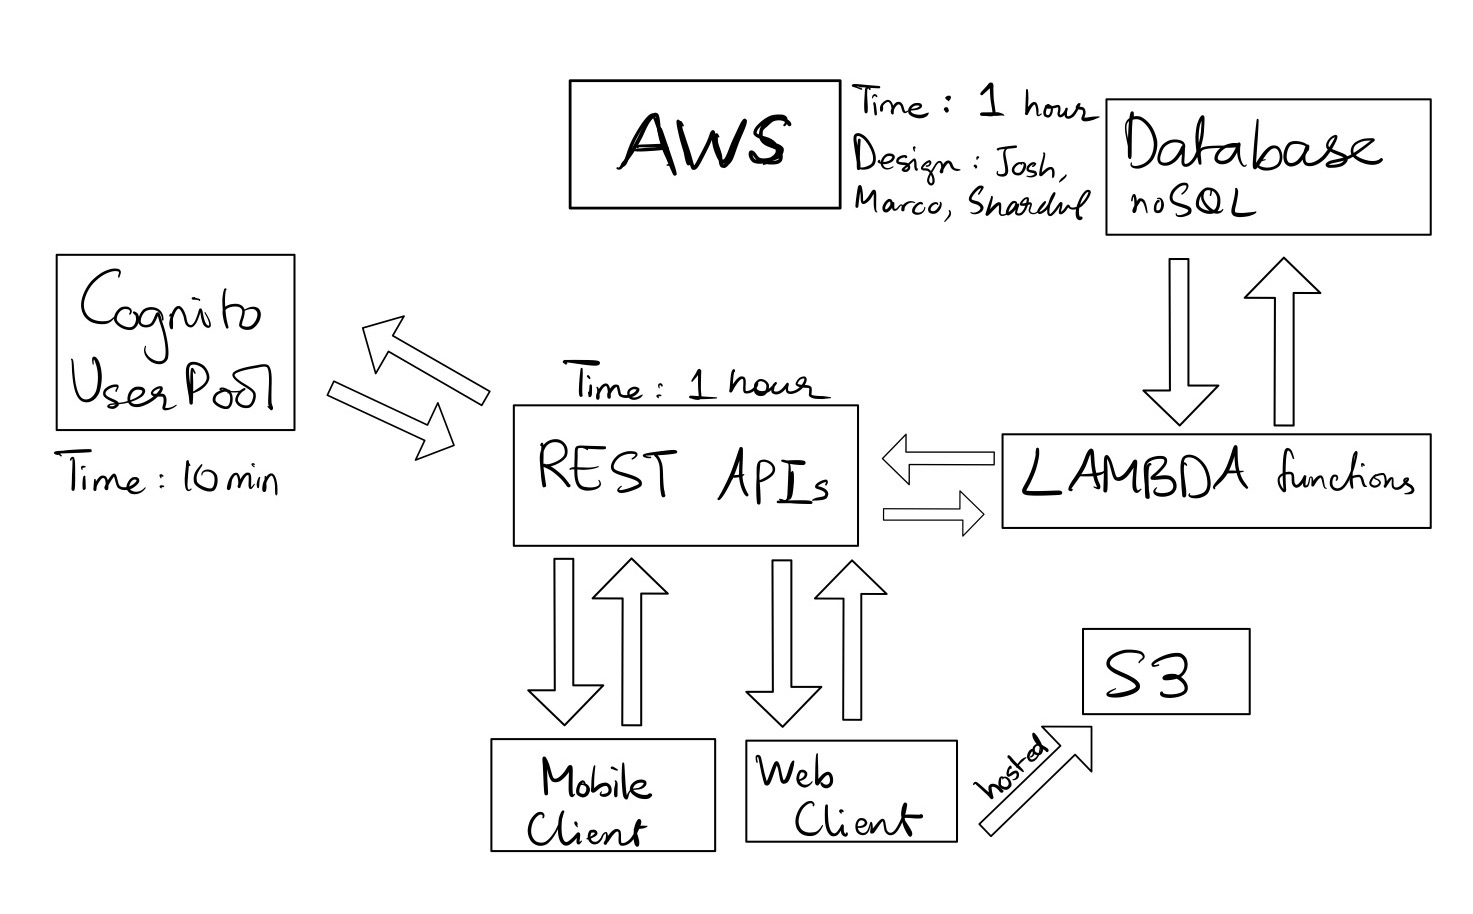 AWS
Time : 1 hour
Design : Josh,
Marco, Shardul
Database
noSQL
Cognito
UserPool
Time : 10 min
Time : 1 hour
REST APIs
LAMBDA functions
S3
hosted
Mobile
Client
Web
Client